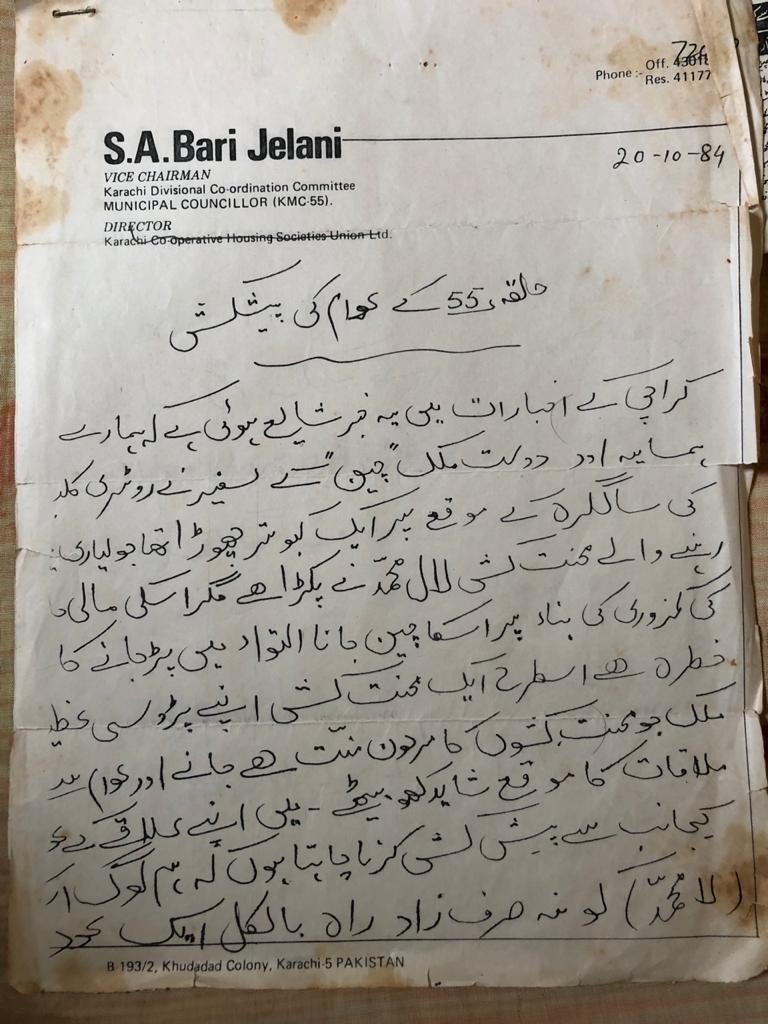 Phone :- Off. 43011 726
Res. 41177
S.A.Bari Jelani
20-10-84
VICE CHAIRMAN
Karachi Divisional Co-ordination Committee
MUNICIPAL COUNCILLOR (KMC-55).
DIRECTOR
Karachi Co-operative Housing Societies Union Ltd.
حلقہ 55 کے عوام کی پیشکش
کراچی کے اخبارات میں یہ خبر شایع ہوئی ہے کہ ہمارے
ہمسایہ اور دوست ملک "چین" کے سفیر نے روٹری کلب
کی سالگرہ کے موقع پر ایک کبوتر چھوڑا تھا جو لیاری
رہنے والے محنت کش لال محمّد نے پکڑا ھے مگر اسکی مالی
کی کمزوری کی بناء پر اسکا چین جانا التواء میں پڑ جانے کا
خطرہ ھے اسطرح ایک محنت کش اپنے پڑوسی
ملک جو محنت کشوں کا مرہون منّت ھے جانے اور عوام سے
ملاقات کا موقع شاید کھو بیٹھے - میں اپنے علاقے کے
کیجانب سے پیش کش کرنا چاہتا ہوں کہ ہم لوگ
(لا محمّد) کو نہ صرف زاد راہ بالکل ایک
B-193/2, Khudadad Colony, Karachi-5 PAKISTAN